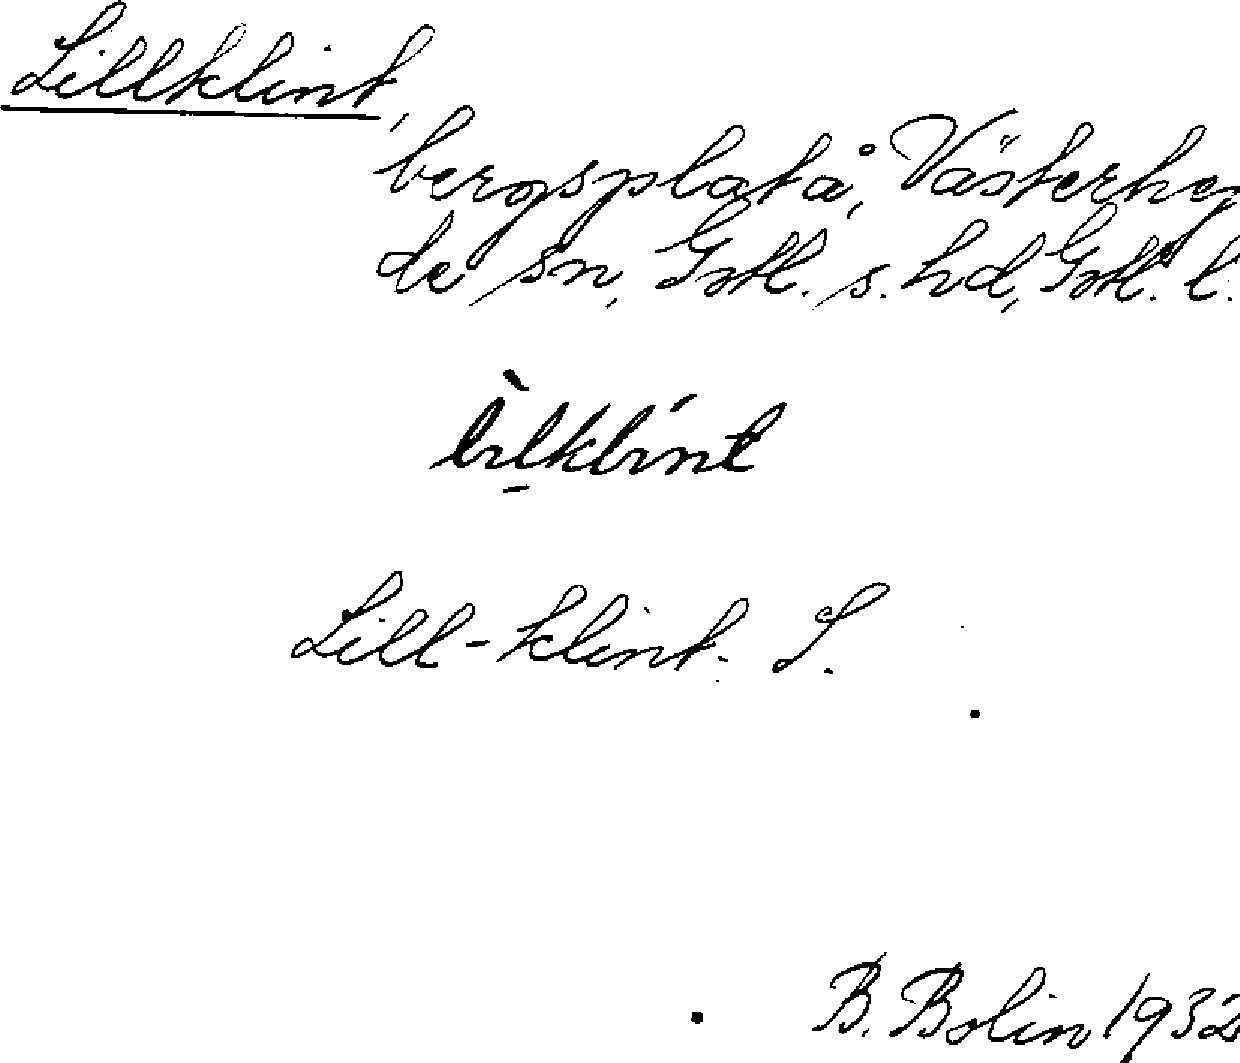 Lillklint,
bergsplatå, Västerhej
de sn, Gotl. s. hd, Gotl. l.
lìlklínt
Lill-klint. L.
B. Bolin 1932